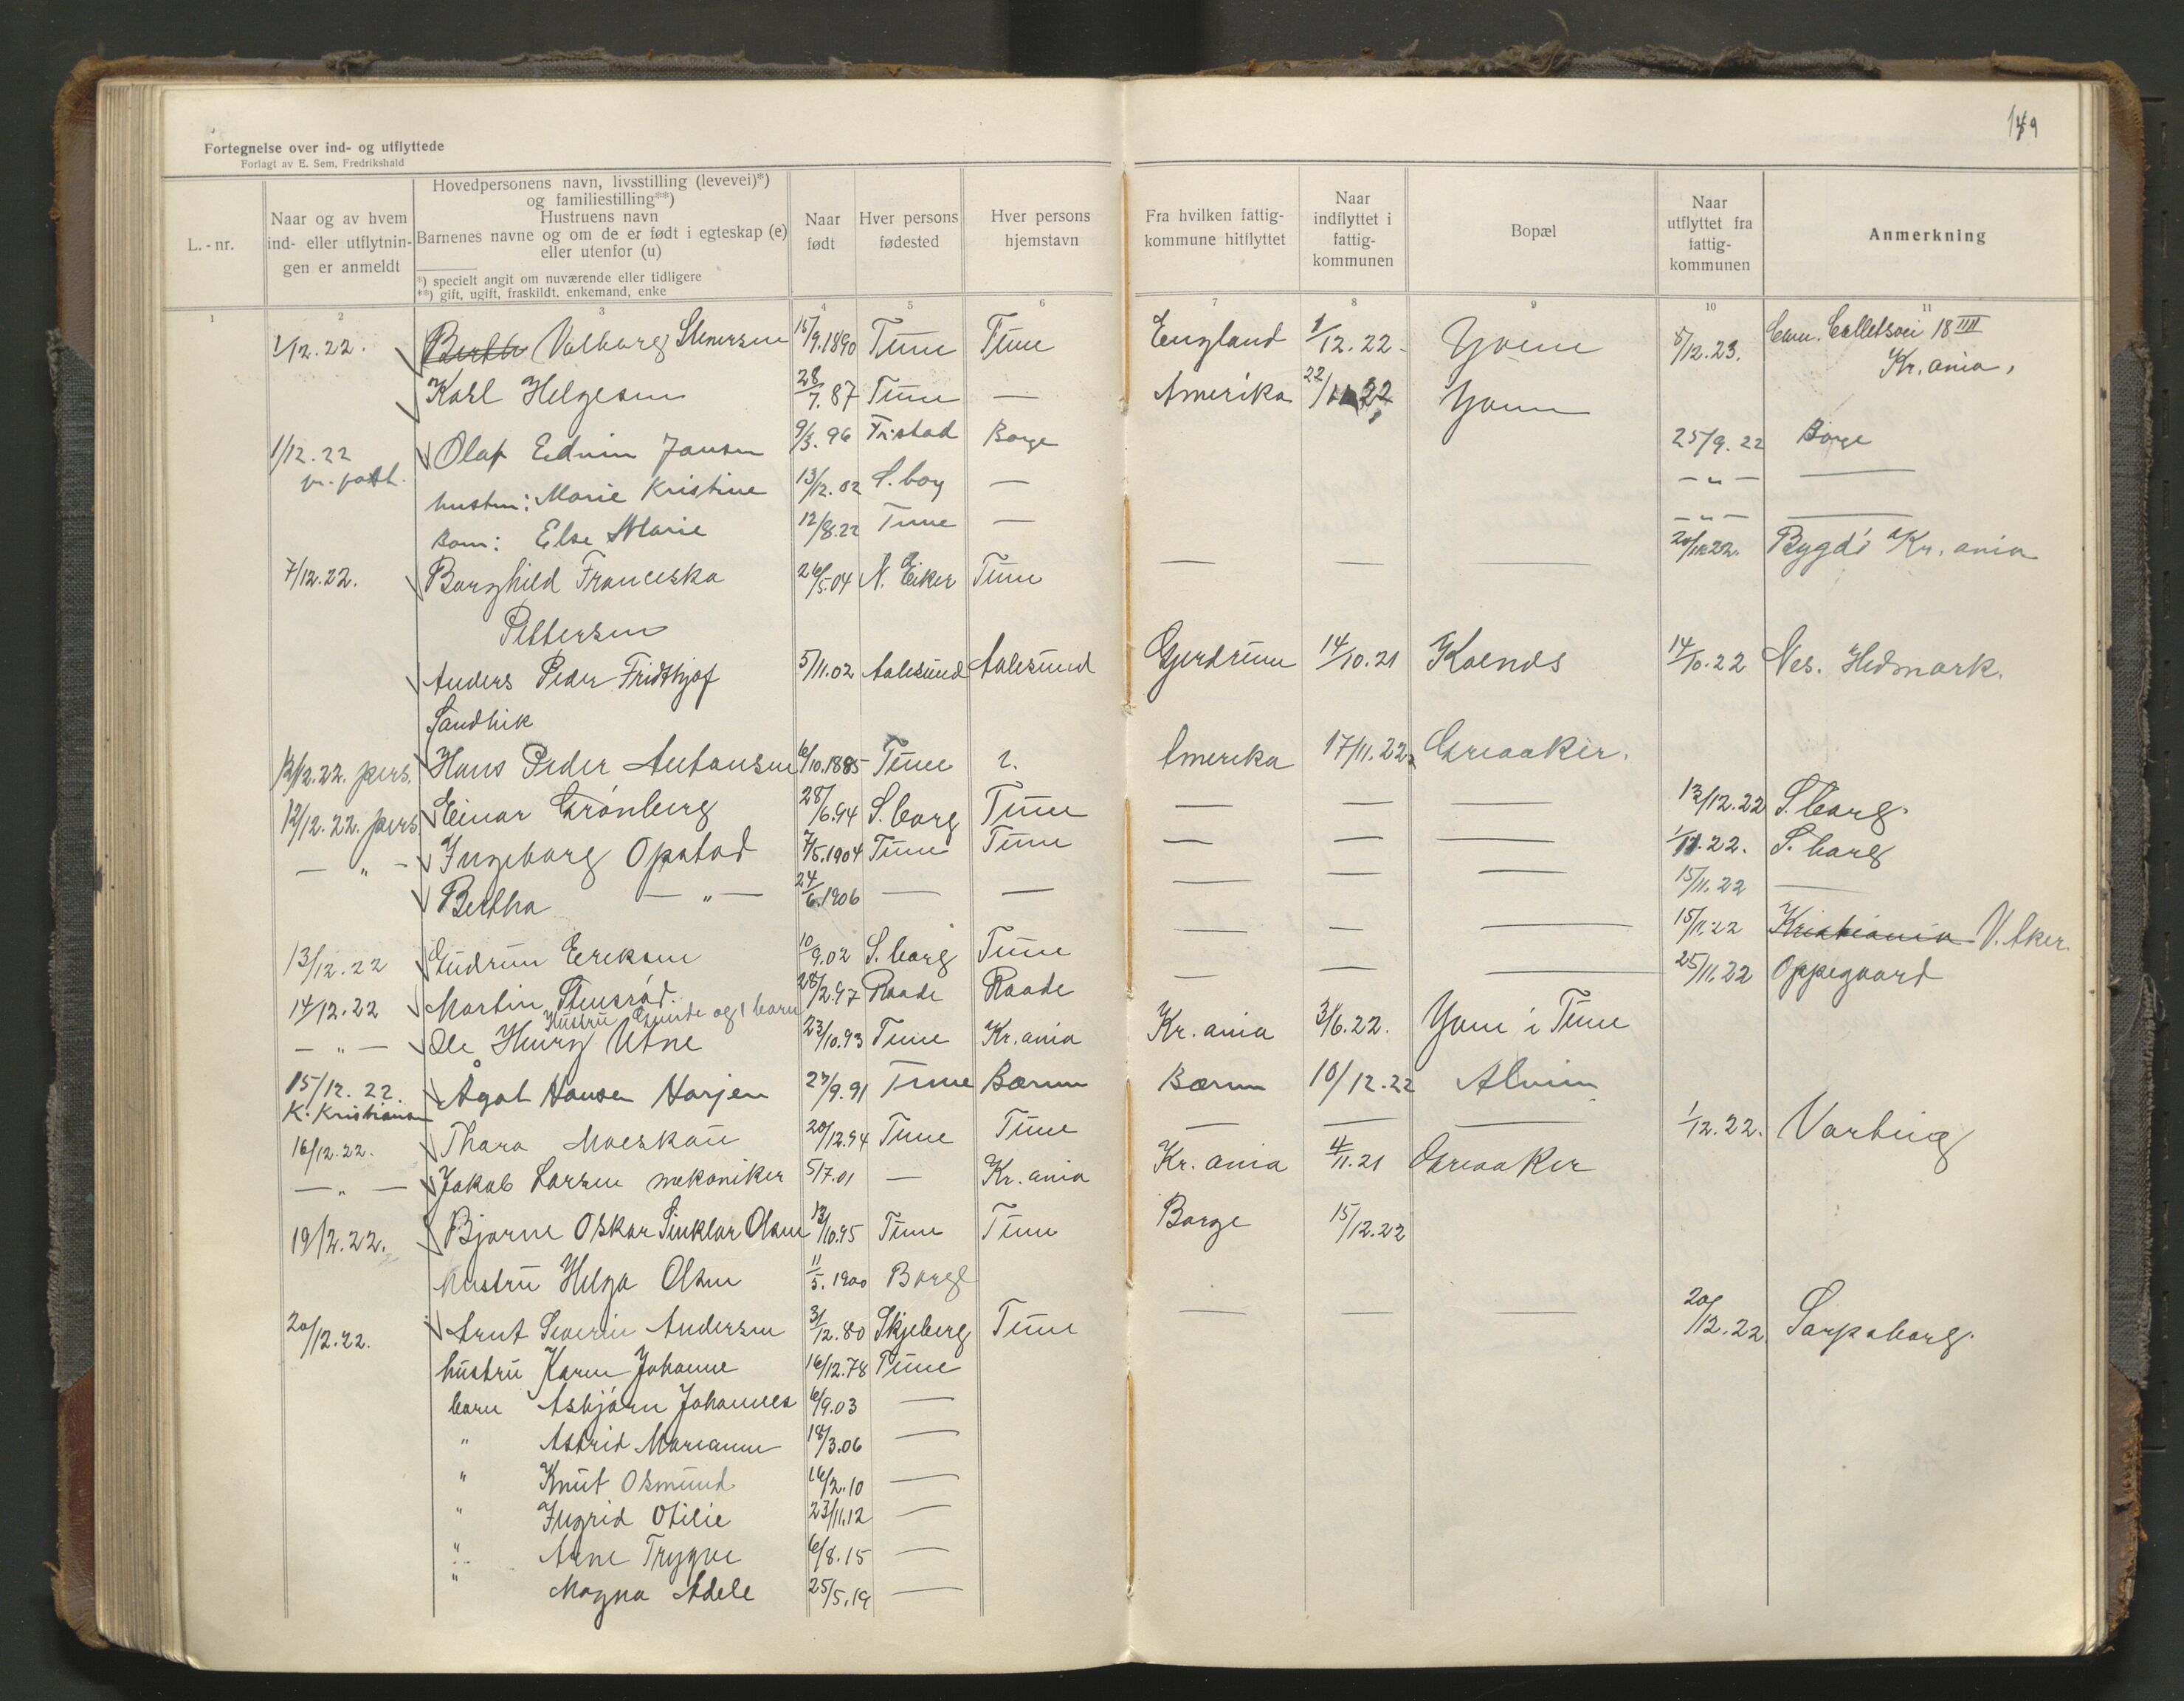 149
Fortegnelse over ind- og utflyttede
Forlagt av E. Sem, Fredrikshald
L.-nr.
Naar og av hvem
ind- eller utflytnin-
gen er anmeldt
Hovedpersonens navn, livsstilling (levevei)*)
og familiestilling**)
Hustruens navn
Barnenes navne og om de er født i egteskap (e)
eller utenfor (u)
*) specielt angit om nuværende eller tidligere
**) gift, ugift, fraskildt, enkemand, enke
Naar
født
Hver persons
fødested
Hver persons
hjemstavn
Fra hvilken fattig-
kommune hitflyttet
Naar
indflyttet i
fattig-
kommunen
Bopæl
Naar
utflyttet fra
fattig-
kommunen
Anmerkning
1 2 3 4 5 6 7 8 9 10 11
1/12.22. Valborg Stenersen 15/9.1890 Tune Tune England 1/12.22 - Yven 8/12.23. Cam. Colletsvei 18 IIII
Kr. ania,
Karl Helgesen 28/7.87 Tune — Amerika 22/11 22 Yven
1/12.22 Olaf Edvin Jansen 9/3.96 Fr.stad Borge 25/9.22 Borge
pr. post. hustru: Marie Kristine 13/12.02 S.borg — — " — —
Barn: Else Marie 12/8.22 Tune — — " — —
7/12.22. Borghild Franciska 26/5.04 N. Eiker Tune — — — 20/11.22. Bygdö Kr. ania
Pettersen
Anders Peder Fridthjof 5/11.02 Aalesund Aalesund Gjerdrum 14/10.21 Kalnes 14/10.22 Nes. Hedmark.
Sandvik
12/12.22. pers. Hans Peder Antonsen 6/10.1885 Tune ?. Amerika 17/11.22. Greaaker.
12/12.22. pers Einar Grönberg 28/6.94 S.borg Tune — — — 12/12.22 S.borg
— " — Ingeborg Opstad 7/5.1904 Tune Tune — — — 1/11.22. S.borg
Bertha — " — 24/6.1906 — — — — — 15/11.22 —
13/12.22 Gudrun Eriksen 10/9.02 S.borg Tune — — — 15/11.22 Kristiania V. Aker.
14/12.22 Martin Stensröd. 28/2.97 Raade Raade — — — 25/11.22 Oppegaard
Hustru og 1 barn
— " — Ole Henry Utne 23/10.93 Tune Kr. ania Kr. ania 3/6.22. Yven i Tune
15/12.22. Ågot Hansen Harjen 27/9.91 Tune Bærum Bærum 10/12.22 Alvim
K. Kristiansen
16/12.22. Thora Moeskau 20/12.94 Tune Tune — — — 1/12.22. Varteig
— " — Jakob Larsen mekaniker 5/7.01 — Kr. ania Kr. ania 4/11.21 Greaaker
19/12.22. Bjarne Oskar Sinklar Olsen 13/10.95 Tune Tune Borge 15/12.22
hustru Helga Olsen 11/5.1900 Borge
20/12.22. Arnt Severin Andersen 31/12.80 Skjeberg Tune — — — 20/12.22. Sarpsborg.
hustru Karen Johanne 16/12.78 Tune
barn Asbjörn Johannes 6/9.03 —
" Astrid Marianne 18/3.06 —
" Knut Osmund 16/2.10 —
" Ingrid Otilie 23/11.12 —
" Arne Trygve 6/8.15 —
" Magna Adele 25/5.19 —